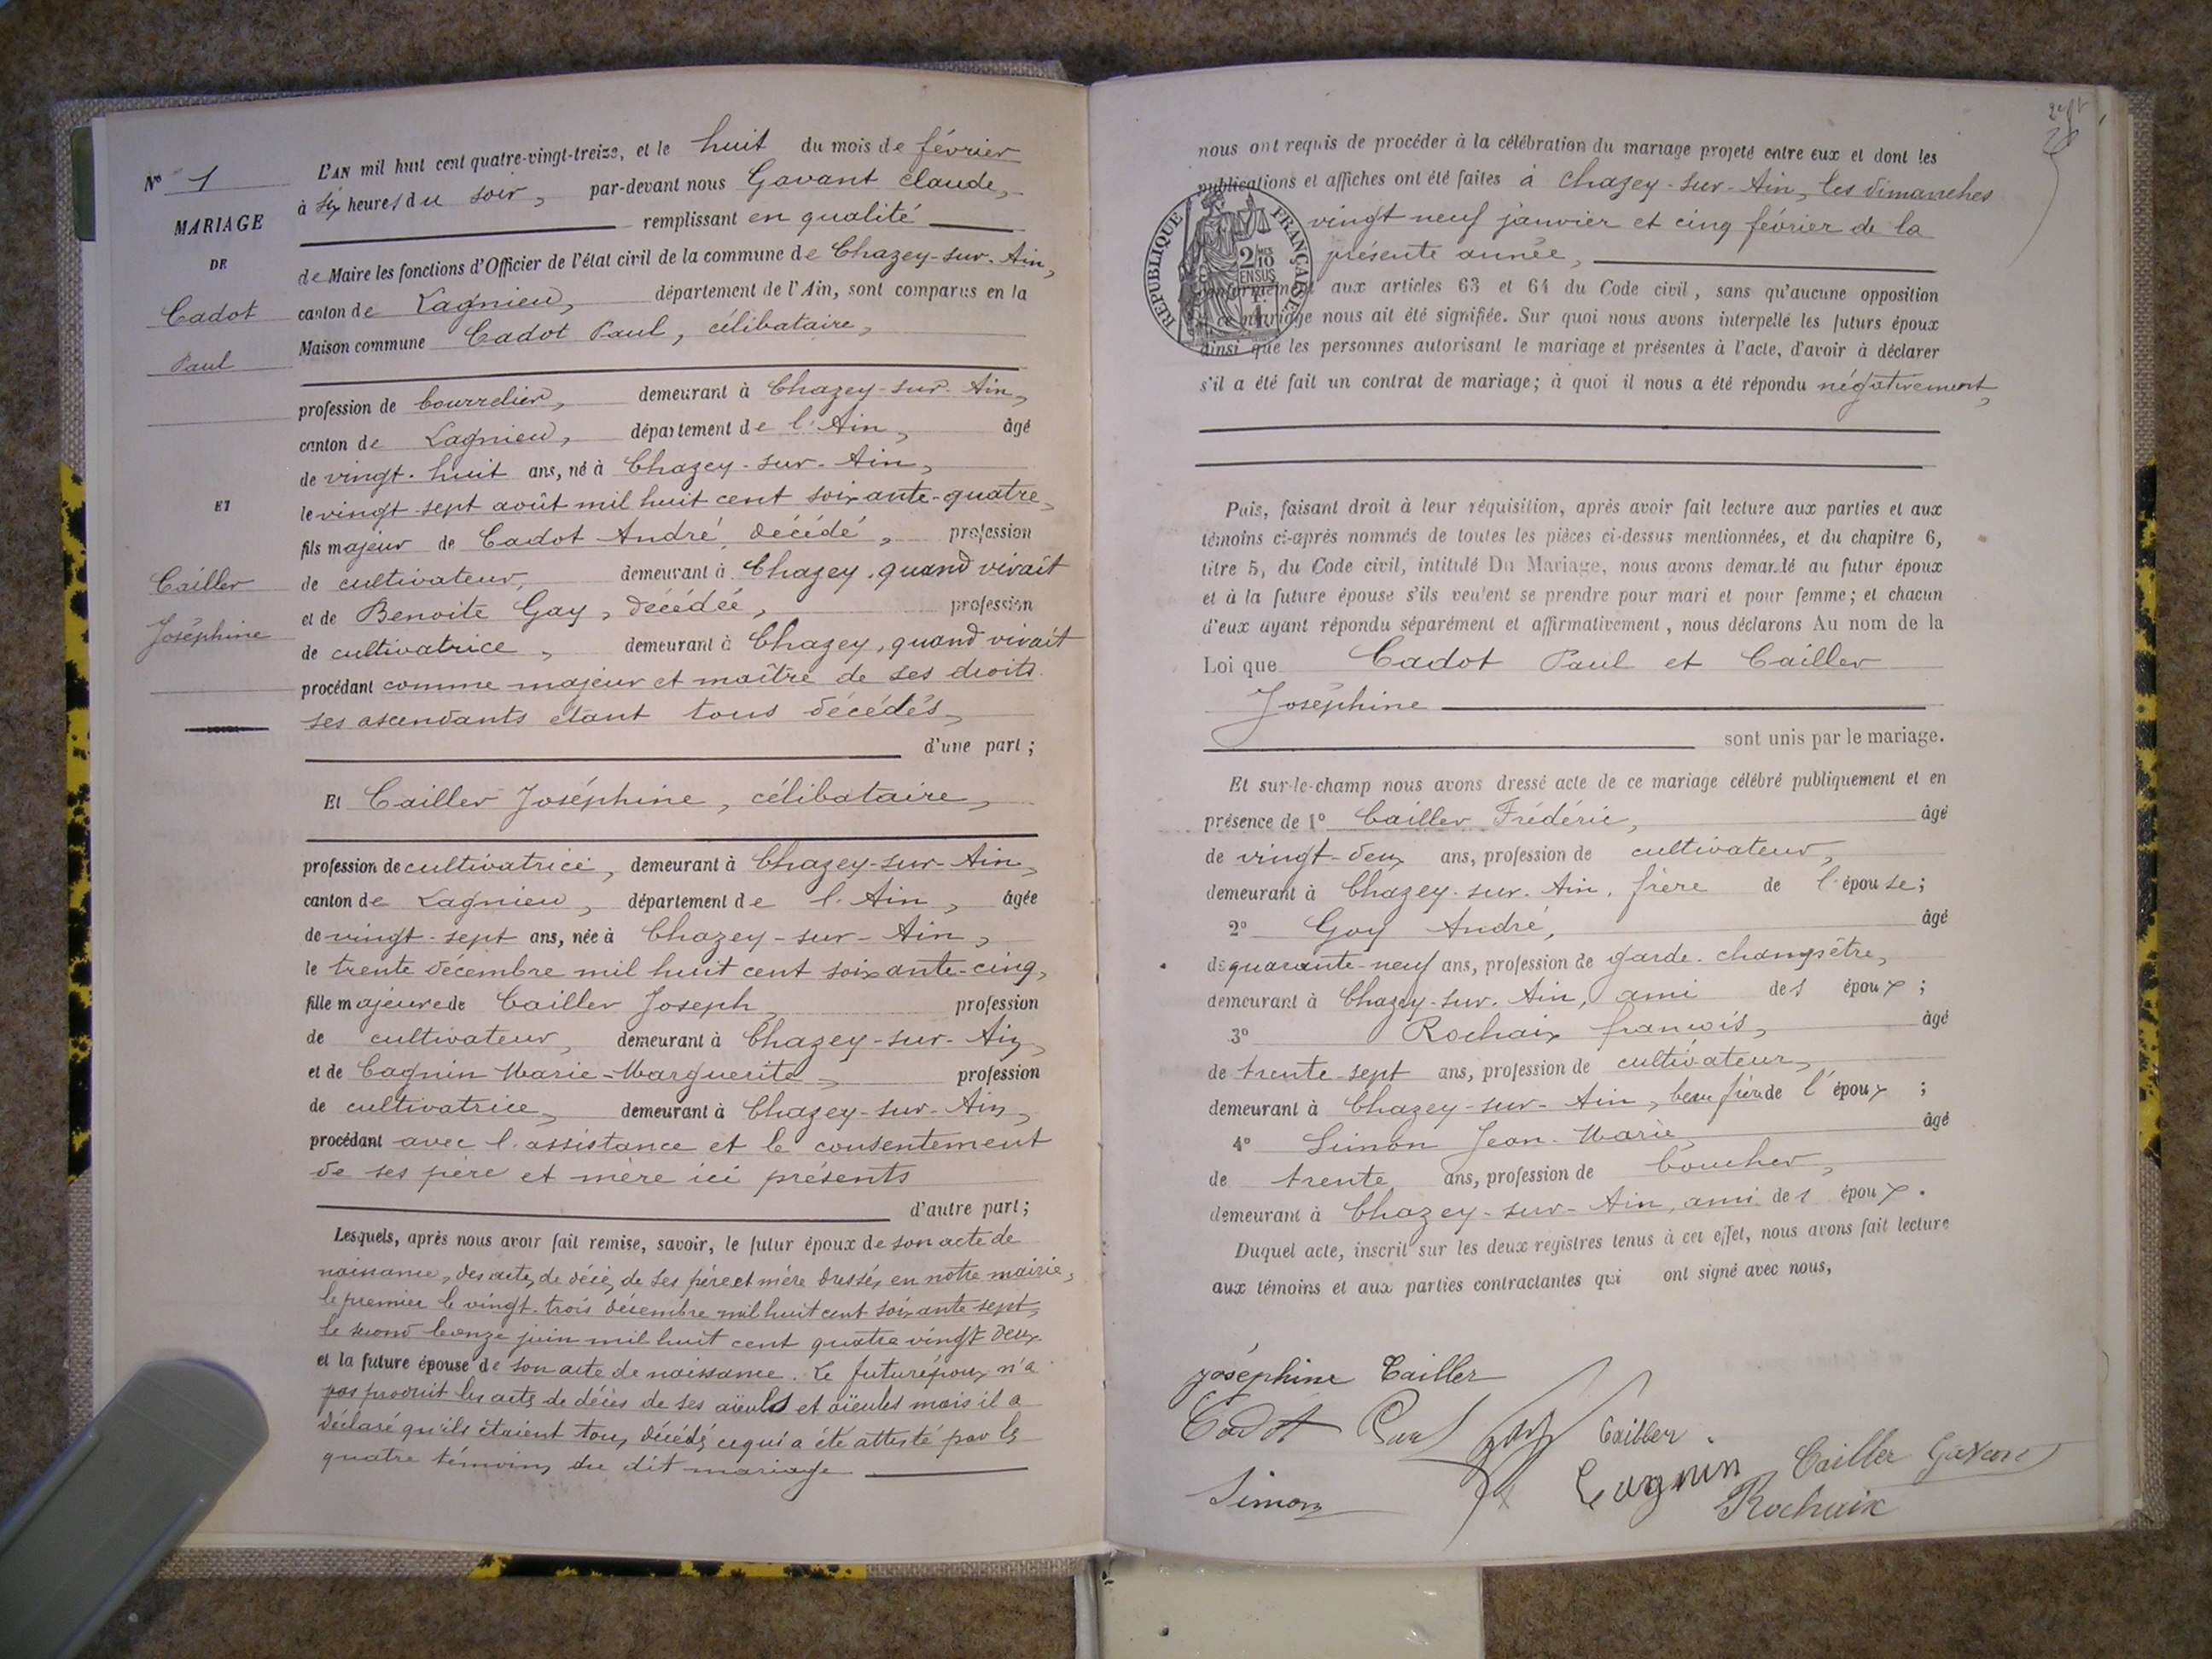 N° 1
MARIAGE
DE
Cadot
Paul
ET
Cailler
Joséphine
L'AN mil huit cent quatre-vingt-treize, et le huit du mois de février
à six heures du soir, par-devant nous Gavant Claude,
remplissant en qualité
de Maire les fonctions d'Officier de l'état civil de la commune de Chazey-sur-Ain,
canton de Lagnieu, département de l'Ain, sont comparus en la
Maison commune Cadot Paul, célibataire,
profession de bourrelier, demeurant à Chazey-sur-Ain,
canton de Lagnieu, département de l'Ain, âgé
de vingt-huit ans, né à Chazey-sur-Ain,
le vingt-sept août mil huit cent soixante-quatre,
fils majeur de Cadot André, décédé, profession
de cultivateur, demeurant à Chazey, quand vivait
et de Benoite Gay, décédée, profession
de cultivatrice, demeurant à Chazey, quand vivait
procédant comme majeur et maître de ses droits
ses ascendants étant tous décédés,
d'une part;
Et Cailler Joséphine, célibataire,
profession de cultivatrice, demeurant à Chazey-sur-Ain,
canton de Lagnieu, département de l'Ain, âgée
de vingt-sept ans, née à Chazey-sur-Ain,
le trente décembre mil huit cent soixante-cinq,
fille majeure de Cailler Joseph, profession
de cultivateur, demeurant à Chazey-sur-Ain,
et de Cagnin Marie-Marguerite, profession
de cultivatrice, demeurant à Chazey-sur-Ain,
procédant avec l'assistance et le consentement
de ses père et mère ici présents
d'autre part;
Lesquels, après nous avoir fait remise, savoir, le futur époux de son acte de
naissance, des actes de décès de ses père et mère dressés en notre mairie,
le premier le vingt-trois décembre mil huit cent soixante sept,
le second le onze juin mil huit cent quatre vingt deux
et la future épouse de son acte de naissance. Le futur époux n'a
pas produit les actes de décès de ses aïeuls et aïeules mais il a
déclaré qu'ils étaient tous décédés ce qui a été attesté par les
quatre témoins du dit mariage
nous ont requis de procéder à la célébration du mariage projeté entre eux et dont les
publications et affiches ont été faites à Chazey-sur-Ain, les dimanches
vingt neuf janvier et cinq février de la
présente année,
RÉPUBLIQUE FRANÇAISE
2/10 EN SUS
conformément aux articles 63 et 64 du Code civil, sans qu'aucune opposition
à ce mariage nous ait été signifiée. Sur quoi nous avons interpellé les futurs époux
ainsi que les personnes autorisant le mariage et présentes à l'acte, d'avoir à déclarer
s'il a été fait un contrat de mariage; à quoi il nous a été répondu négativement,
Puis, faisant droit à leur réquisition, après avoir fait lecture aux parties et aux
témoins ci-après nommés de toutes les pièces ci-dessus mentionnées, et du chapitre 6,
titre 5, du Code civil, intitulé Du Mariage, nous avons demandé au futur époux
et à la future épouse s'ils veulent se prendre pour mari et pour femme; et chacun
d'eux ayant répondu séparément et affirmativement, nous déclarons Au nom de la
Loi que Cadot Paul et Cailler
Joséphine
sont unis par le mariage.
Et sur-le-champ nous avons dressé acte de ce mariage célébré publiquement et en
présence de 1° Cailler Frédéric, âgé
de vingt-deux ans, profession de cultivateur,
demeurant à Chazey-sur-Ain, frère de l'épouse;
2° Goy André, âgé
de quarante-neuf ans, profession de garde-champêtre,
demeurant à Chazey-sur-Ain, ami des époux;
3° Rochaix françois, âgé
de trente-sept ans, profession de cultivateur,
demeurant à Chazey-sur-Ain, beau frère de l'époux;
4° Simon Jean-Marie, âgé
de trente ans, profession de boucher,
demeurant à Chazey-sur-Ain, ami des époux.
Duquel acte, inscrit sur les deux registres tenus à cet effet, nous avons fait lecture
aux témoins et aux parties contractantes qui ont signé avec nous,
Joséphine Cailler
Cadot Paul Cailler
Simon Cagnin Cailler Gavant
Rochaix